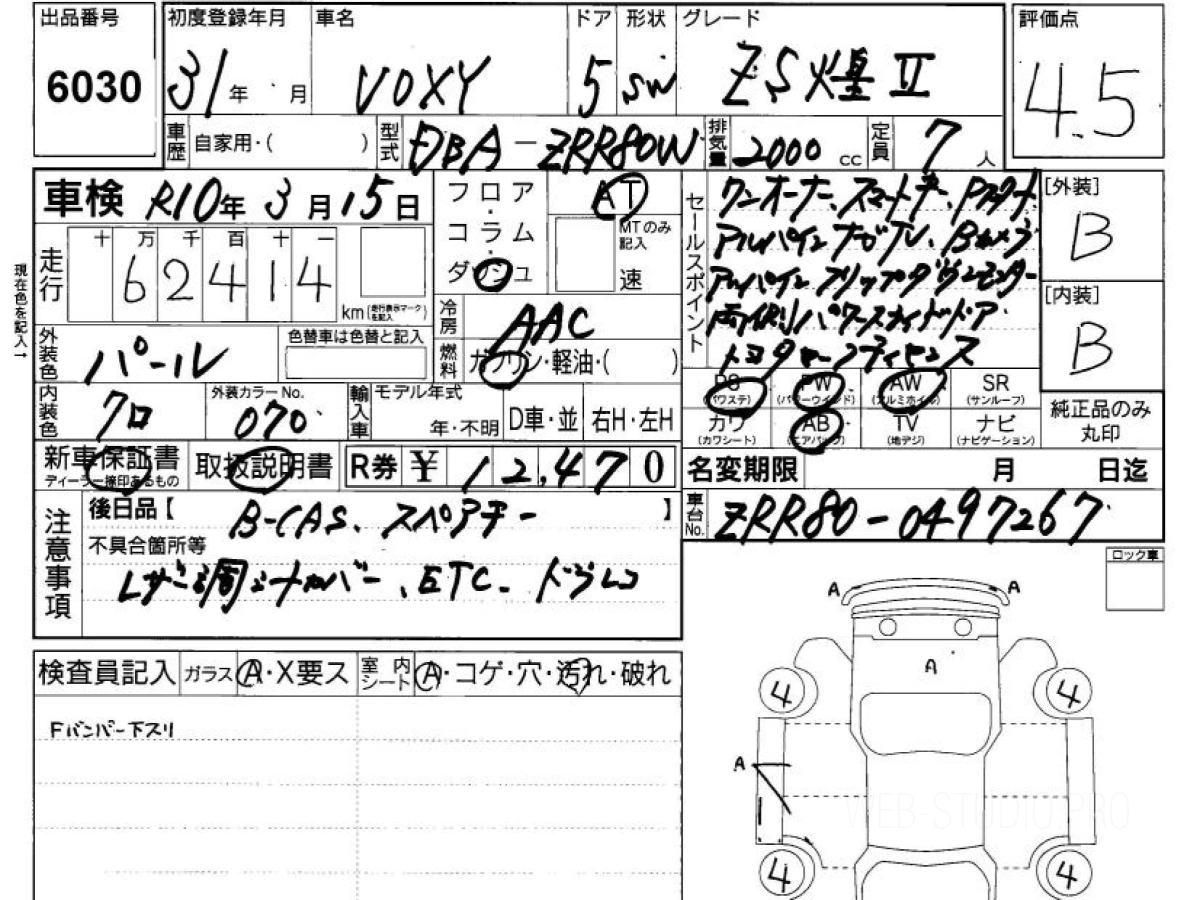 出品番号 初度登録年月 車名 ドア 形状 グレード 評価点
6030 31年 月 VOXY 5 SW ZS煌Ⅱ 4.5
車歴 自家用・( ) 型式 DBA-ZRR80W 排気量 2000cc 定員 7人
車検 R10年3月15日
フロア・コラム・ダッシュ AT
MTのみ記入
速
セールスポイント
ワンオーナー、スマートキー、Pスタート
アルパインナビTV、Bカメラ
アルパインフリップダウンモニター
両側パワースライドドア
トヨタセーフティセンス
[外装]
B
[内装]
B
現在色を記入→
走行 十 万 千 百 十 一
62414
km (走行表示マークを記入)
冷房 AAC
外装色 パール 色替車は色替と記入
燃料 ガソリン・軽油・( )
内装色 クロ 外装カラーNo. 070
輸入車 モデル年式 年・不明 D車・並 右H・左H
PS (パワステ) PW (パワーウインド) AW (アルミホイル) SR (サンルーフ)
カワ (カワシート) AB (エアバッグ) TV (地デジ) ナビ (ナビゲーション)
純正品のみ丸印
新車保証書 ディーラー捺印あるもの 取扱説明書 R券 ¥12,470
名変期限 月 日迄
車台No. ZRR80-0497267
注意事項
後日品【 B-CAS、スペアキー 】
不具合箇所等
レザー調シートカバー、ETC、ドラレコ
ロック車
検査員記入 ガラス A・X要ス 室内シート A・コゲ・穴・汚れ・破れ
Fバンパー下スリ
A A
A
4 4
A
WEB-STUDIO.PRO
4 4